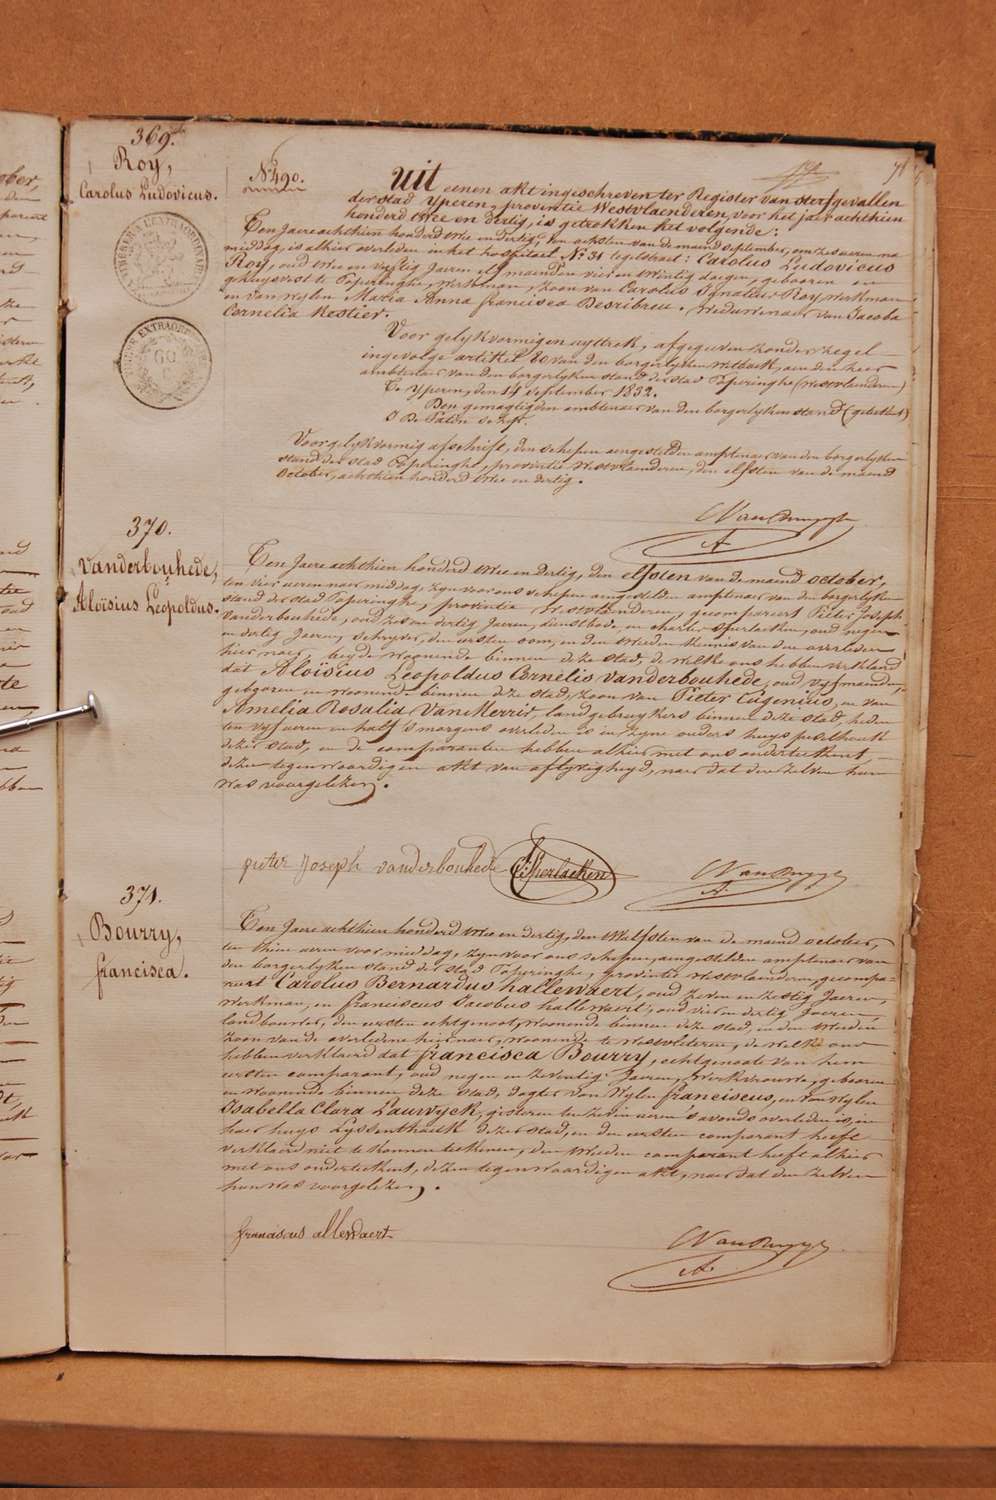 369.
Roy,
Carolus Ludovicus.
No. 490.
Uit eenen akt ingeschreven ter Register van sterfgevallen
der stad Yperen, provintie Westvlaenderen, voor het jaer achthien
honderd twee en dertig, is getrokken het volgende:
Ten Jaere achthien honderd twee en dertig, den achsten van de maend September, om zes uren na
middag, is alhier overleden in het hospitael No. 31 tegelstraet: Carolus Ludovicus
Roy, oud twee en vyftig Jaeren elf maenden vier en twintig daegen, gebooren en
gehuysvest te Poperinghe, werkman, zoon van Carolus Ignatius Roy, werkman
en van wylen Maria Anna francisca Desribreu. Weduwenaer van Jacoba
Cornelia Kestier.
Voor gelykvormigen uyttrek, afgegeven zonder zegel
ingevolge artikel 80 van den borgerlyken wetboek, aen den heer
ambtenaer van den borgerlyken stand der stad Poperinghe (Westvlaenderen)
Te Yperen, den 14 September 1832.
Den gemagtigden ambtenaer van den borgerlyken stand (geteekent)
Voor gelykvormig afschrift, den schepen aengestelden amptenaer van den borgerlyken
stand der stad Poperinghe, provintie Westvlaenderen, den elfsten van de maend
October, achthien honderd twee en dertig.
370.
Vanderbouhede,
Aloïsius Leopoldus.
Ten Jaere achthien honderd twee en dertig, den elfsten van de maend october,
ten vier uren naer middag, zyn voor ons schepen aengestelden amptenaer van den borgerlyken
stand der stad Poperinghe, provintie Westvlaenderen, gecompareert Pieter Joseph
Vanderbouhede, oud zes en dertig Jaeren, dienstbode, en charles sperlaeken, oud negen
en dertig Jaeren, schryver, den eersten oom, en den tweeden kennis van den overleden
hier naer, beyde woonende binnen deze stad, de welke ons hebben verklaerd
dat Aloïsius Leopoldus Cornelis vanderbouhede, oud vyf maenden,
gebooren en woonende binnen deze stad, zoon van Pieter Eugenius, en van
Amelia Rosalia VanMerris, landgebruykers binnen deze stad, heden
ten vyf uren en half 's morgens overleden is in zyne ouders huys
dezer stad, en de comparanten hebben alhier met ons onderteekent,
dezen tegenwoordigen akt van aflyvigheyd, naer dat den zelven hun
was voorgelezen.
pieter Joseph vanderbouhede
371.
Bourry,
francisca.
Ten Jaere achthien honderd twee en dertig, den twelfsten van de maend october,
ten thien uren voor middag, zyn voor ons schepen, aengestelden amptenaer van
den borgerlyken stand der stad Poperinghe, provintie westvlaenderen, gecompa-
reert Carolus Bernardus hallewaert, oud zeven en zestig Jaeren,
werkman, en franciscus Jacobus hallewaert, oud vier en dertig Jaeren,
landbouwer, den eersten echtgenoot, woonende binnen deze stad, en den tweeden
zoon van de overledene hier naer, woonende te westvleteren, de welke ons
hebben verklaerd dat francisca Bourry, echtgenoote van hem
eersten comparant, oud negen en zeventig Jaeren, werkvrouwe, gebooren
en woonende binnen deze stad, dogter van wylen franciscus, en van wylen
Isabella Clara Lauwyck, gisteren ten zeven uren 's avonds overleden is, in
haer huys Lyssenthoek dezer stad, en den eersten comparant heeft
verklaerd niet te konnen teekenen, den tweeden comparant heeft alhier
met ons onderteekent, dezen tegenwoordigen akt, naer dat den zelven
hun was voorgelezen.
franciscus allewaert